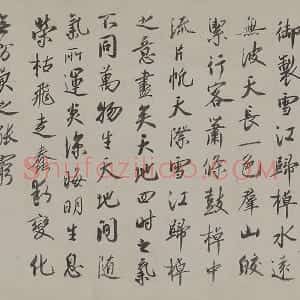 御製雪江歸棹水遠
無波天長一色群山皎
潔行客蕭條鼓棹中
流片帆天際雪江歸棹
之意盡矣天地四時之氣
不同萬物生天地間隨
氣所運炎涼晦明生息
榮枯飛走蠢動變化
無方莫之能窮